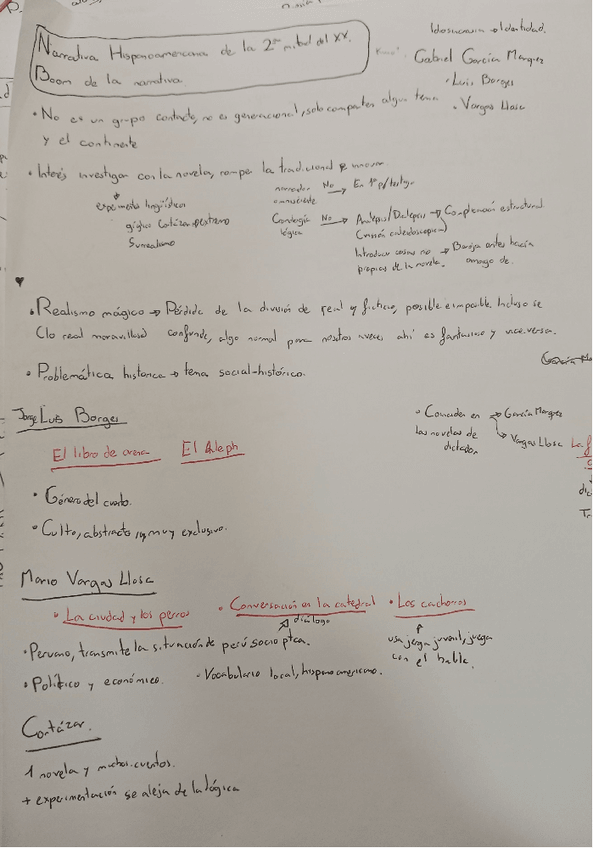 Idosincrasia → Identidad.
Narrativa Hispanoamericana de la 2ª mitad del XX.
Boom de la narrativa
Gabriel García Márquez
• Luis Borges
• Vargas Llosa
• No es un grupo contado, no es generacional, solo comparten algun tema
y el continente
• Interés investigar con la novela, romper la tradicional e innovar.
experimento lingüístico
gíglico Cortázar → extremo
Surrealismo
narrador omnisciente No → En 1ª p/testigo
Cronología lógica No → Analepsis/Prolepsis → Complicación estructural
(visión caleidoscópica)
Introducir cosas no → Baroja antes hacía
propias de la novela. amago de.
• Realismo mágico → Pérdida de la división de real y ficticio, posible e imposible. Incluso se
(lo real maravilloso) confunde, algo normal para nosotros a veces ahí es fantasioso y viceversa.
• Problemática histórica → tema social-histórico.
Jorge Luis Borges
El libro de arena El Aleph
• Coinciden en → García Márquez
las novelas de → Vargas Llosa
dictador
• Género del cuento.
• Culto, abstracto, y muy exclusivo.
Mario Vargas Llosa
• La ciudad y los perros • Conversación en la catedral • Los cachorros
diálogo
• Peruano, transmite la situación de perú socio ptca.
usa jerga juvenil, juega
con el habla.
• Político y económico. • Vocabulario local, hispanoamericano.
Cortázar.
1 novela y muchos cuentos.
+ experimentación se aleja de la lógica